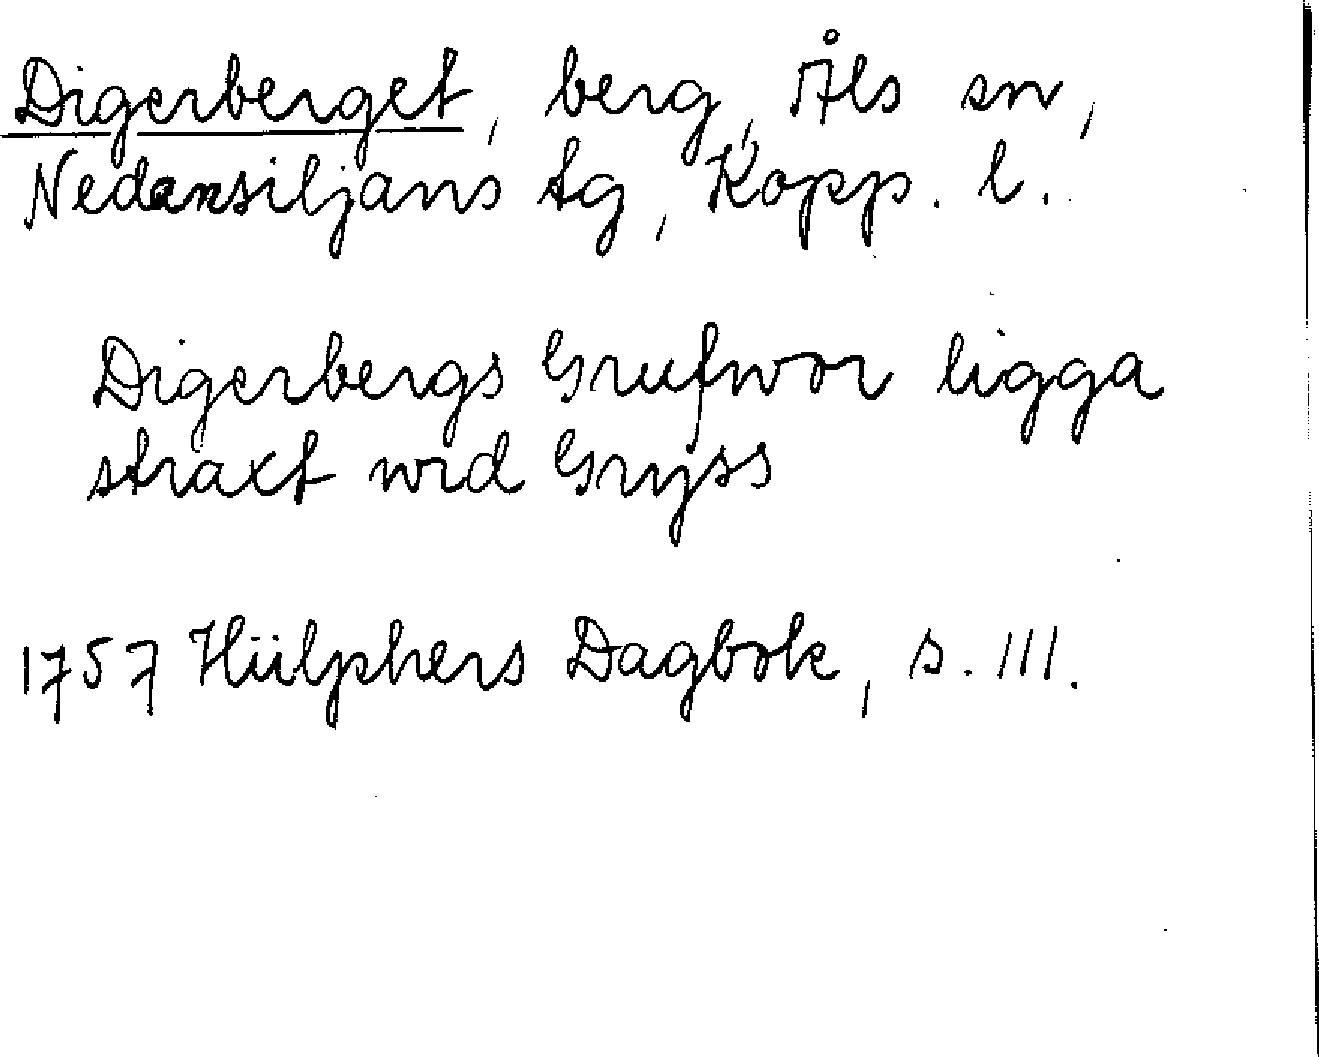 Digerberget, berg, Åls sn,
Nedansiljans tg, Kopp. l.
Digerbergs Grufwor ligga
straxt wid Gryss
1757 Hülphers Dagbok, s. 111.